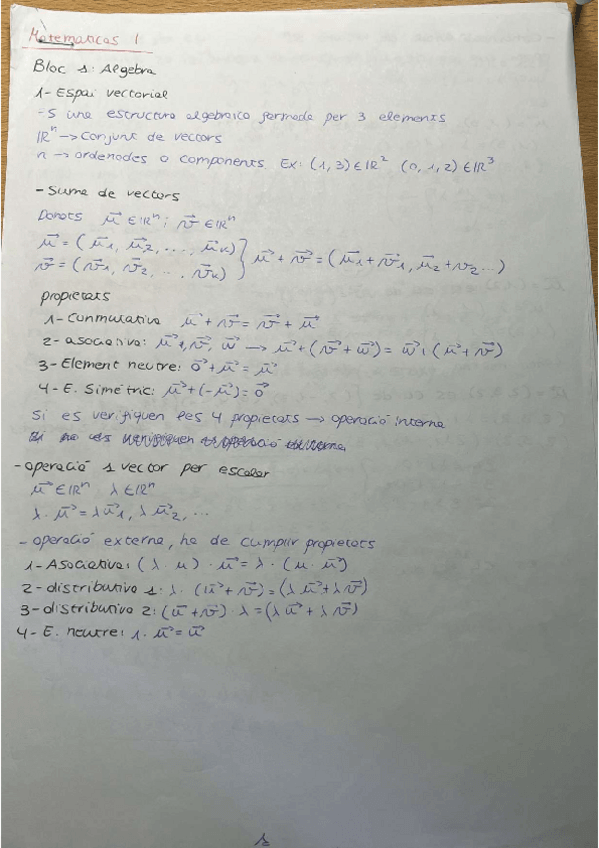 Matematicas 1
Bloc 1: Algebra
1- Espai vectorial
- S una estructura algebraica formada per 3 elements
ℝⁿ → Conjunt de vectors
n → ordenades o components Ex: (1, 3) ∈ ℝ² (0, 1, 2) ∈ ℝ³
- Suma de vectors
Donats u⃗ ∈ ℝⁿ; v⃗ ∈ ℝⁿ
u⃗ = (u⃗₁, u⃗₂, ..., u⃗ₖ)
v⃗ = (v⃗₁, v⃗₂, ..., v⃗ₖ) } u⃗ + v⃗ = (u⃗₁ + v⃗₁, u⃗₂ + v₂ ...)
propietats
1- Conmutativa u⃗ + v⃗ = v⃗ + u⃗
2- asociativa: u⃗, v⃗, w⃗ → u⃗ + (v⃗ + w⃗) = w⃗ + (u⃗ + v⃗)
3- Element neutre: 0⃗ + u⃗ = u⃗
4- E. Simétric: u⃗ + (-u⃗) = 0⃗
Si es verifiquen les 4 propietats → operació interna
Si no es verifiquen
- operació 1 vector per escalar
u⃗ ∈ ℝⁿ λ ∈ ℝⁿ
λ · u⃗ = λu⃗₁, λu⃗₂, ...
- operació externa, ha de cumplir propietats
1- Asociativa: (λ · u) · u⃗ = λ · (u · u⃗)
2- distributiva 1: λ · (u⃗ + v⃗) = (λu⃗ + λv⃗)
3- distributiva 2: (u⃗ + v⃗) · λ = (λu⃗ + λv⃗)
4- E. neutre: 1 · u⃗ = u⃗
1